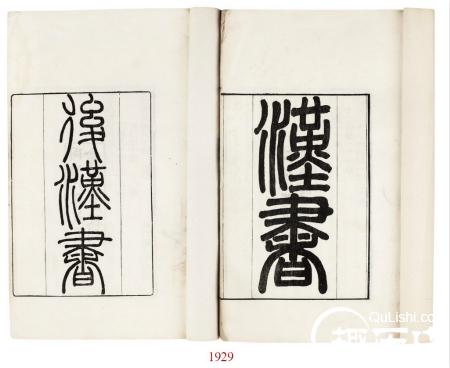 漢書
後漢書
QuLishi.com
1929